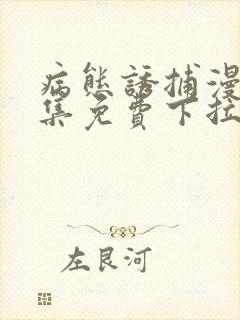 病態誘捕漫
集免費下拉
左艮河